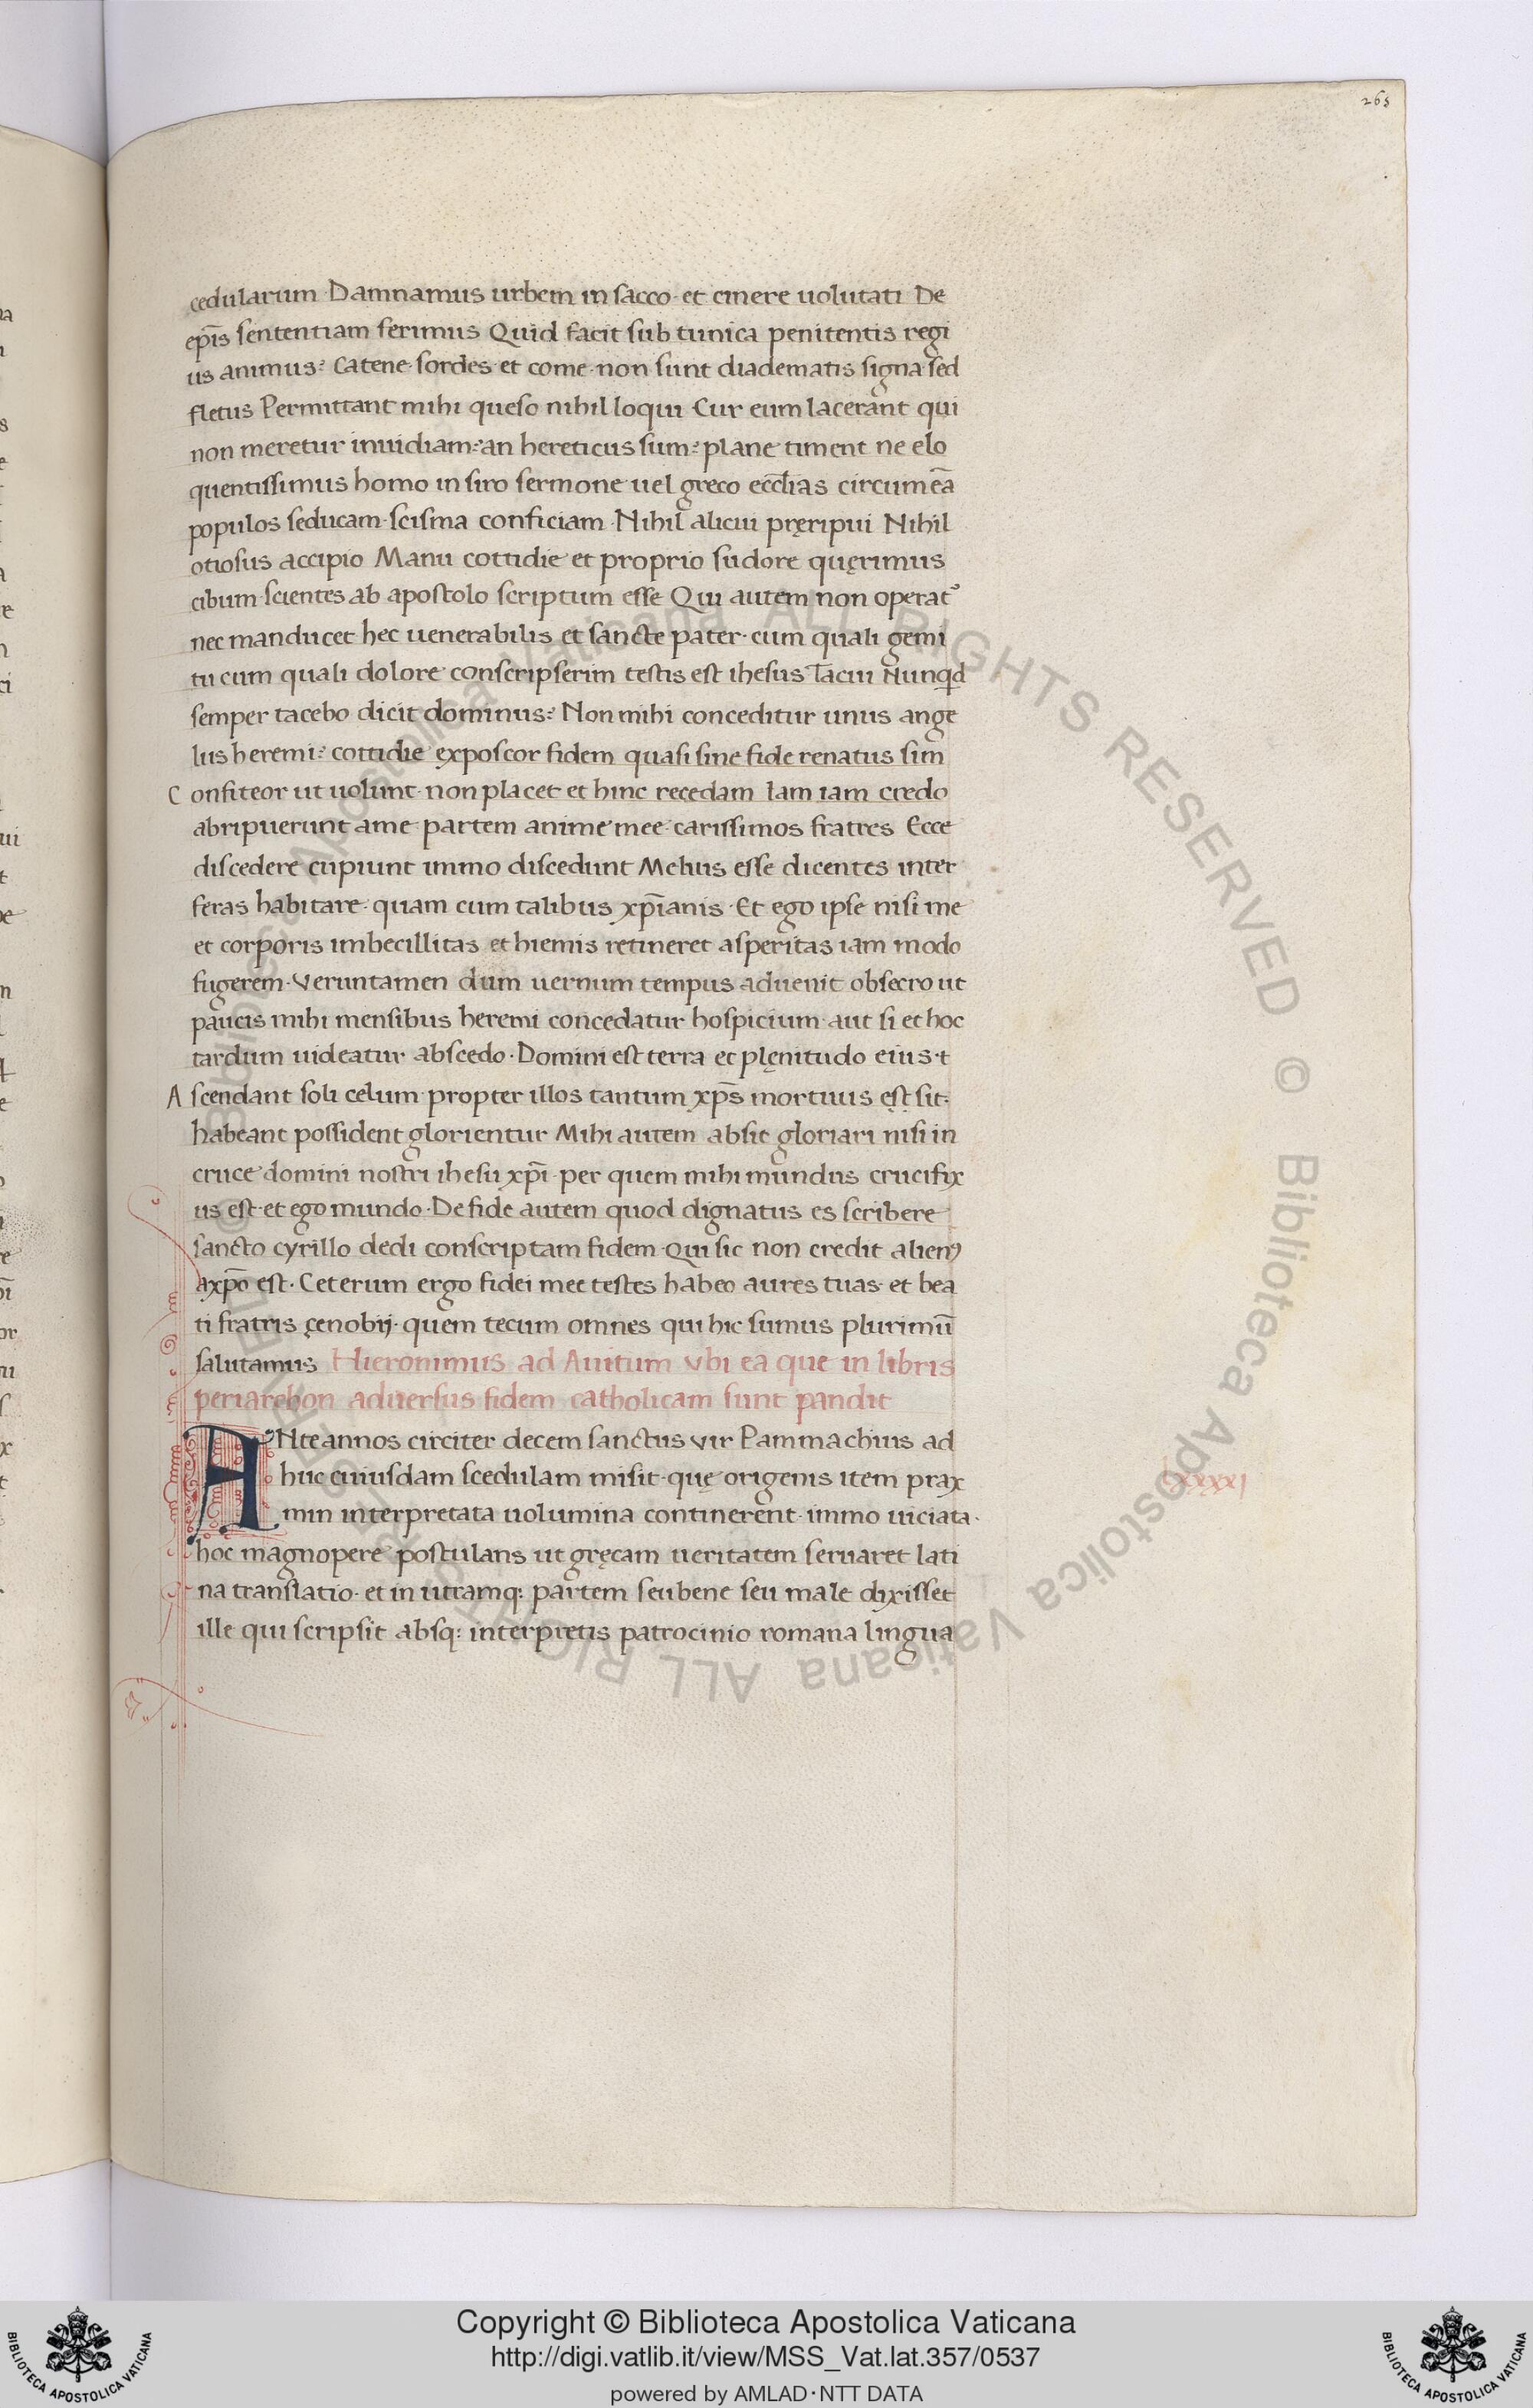 265
cedularum Damnamus urbem in sacco· et cinere uolutati De
ep̄is sententiam ferimus Quid facit sub tunica penitentis regi
us animus? Catene· sordes· et come· non sunt diadematis signa· sed
fletus Permittant mihi queso nihil loqui Cur eum lacerant qui
non meretur inuidiam? an hereticus sum? plane timent ne elo
quentissimus homo in siro sermone uel greco eccl̄ias circumeā
populos seducam· scisma conficiam· Nihil alicui pręripui Nihil
otiosus accipio Manu cottidie et proprio sudore quęrimus
cibum· scientes ab apostolo scriptum esse Qui autem non operat᷒
nec manducet hec uenerabilis et sancte pater· cum quali gemi
tu cum quali dolore conscripserim testis est ihesus Tacui Nunqd
semper tacebo dicit dominus? Non mihi conceditur unus ange
lus heremi? cottidie exposcor fidem quasi sine fide renatus sim
Confiteor ut uolunt· non placet et hinc recedam Iam iam credo
abripuerunt ame partem anime mee· carissimos fratres Ecce
discedere cupiunt immo discedunt Melius esse dicentes inter
feras habitare· quam cum talibus xp̄ianis· Et ego ipse nisi me
et corporis imbecillitas et hiemis retineret asperitas iam modo
fugerem· Veruntamen dum uernum tempus aduenit obsecro ut
paucis mihi mensibus heremi concedatur hospicium· aut si et hoc
tardum uideatur abscedo· Domini est terra et plęnitudo eius·t
Ascendant soli celum· propter illos tantum xp̄s mortuus est sit·
habeant possident glorientur Mihi autem absit gloriari nisi in
cruce domini nostri ihesu xp̄i· per quem mihi mundus crucifix
us est· et ego mundo· De fide autem quod dignatus es scribere
sancto cyrillo dedi conscriptam fidem· Qui sic non credit alienꝰ
axp̄o est· Ceterum ergo fidei mee testes habeo aures tuas· et bea
ti fratris çenobij· quem tecum omnes qui hic sumus plurimū
salutamus Hieronimus ad Auitum vbi ea que in libris
periarchon aduersus fidem catholicam sunt pandit
ANte annos circiter decem sanctus vir Pammachius ad
huc cuiusdam scedulam misit· quę origenis item prax
min interpretata uolumina continerent· immo uiciata·
hoc magnopere postulans ut gręcam ueritatem seruaret lati
na translatio· et in utramq: partem seu bene seu male dixisset
ille qui scripsit absq: interpretis patrocinio romana lingua
lxxxxj
© Biblioteca Apostolica Vaticana ALL RIGHTS RESERVED
Copyright © Biblioteca Apostolica Vaticana
http://digi.vatlib.it/view/MSS_Vat.lat.357/0537
powered by AMLAD·NTT DATA
BIBLIOTECA APOSTOLICA VATICANA
BIBLIOTECA APOSTOLICA VATICANA